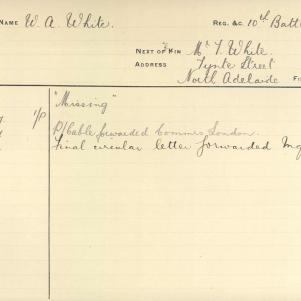 NAME W. A. White. REG. &C. 10th Batt
NEXT OF KIN Mr T. White.
ADDRESS Tynte Street
North Adelaide
"Missing"
P/Cable forwarded Commrs London.
Final circular letter forwarded